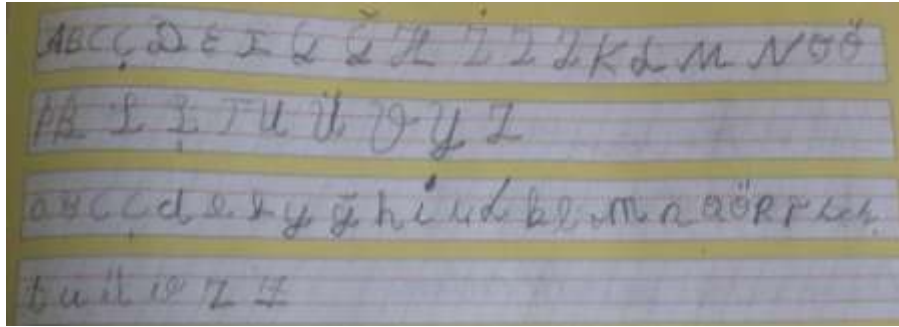 A B C Ç D E F G Ğ H İ I J K L M N O Ö
P R S Ş T U Ü V Y Z
a b c ç d e f g ğ h i ı j k l m n o ö p r s ş
t u ü v y z